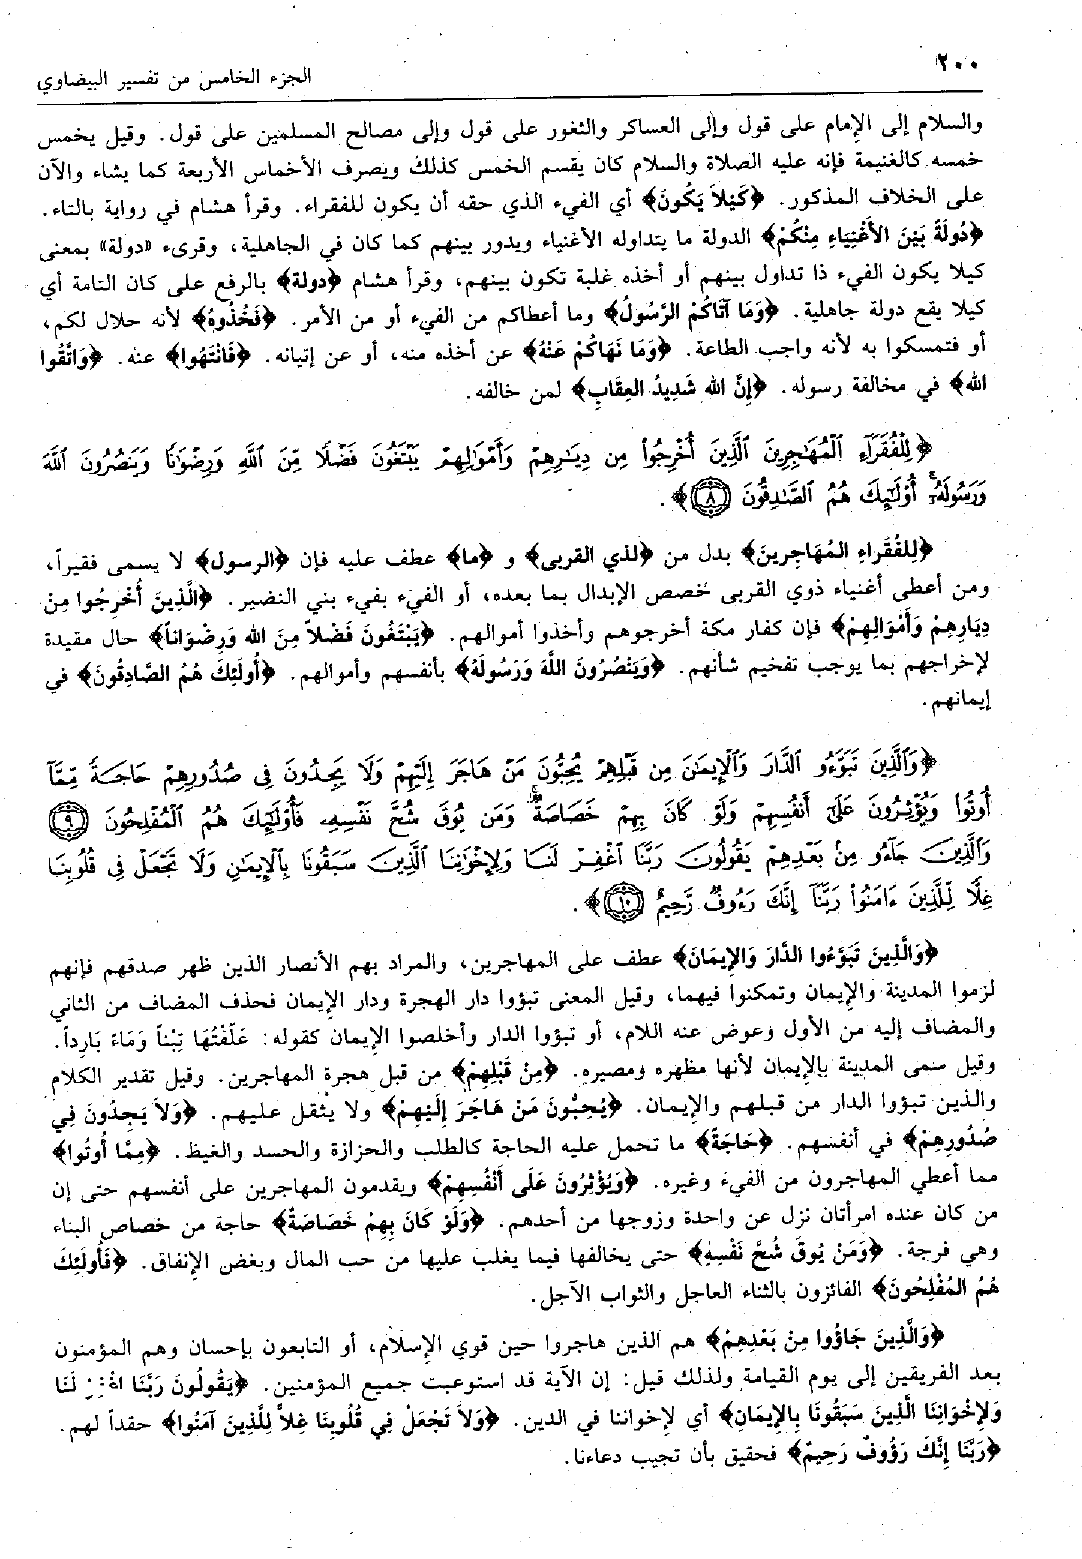 ٢٠٠
الجزء الخامس من تفسير البيضاوي
والسلام إلى الإمام على قول وإلى العساكر والثغور على قول وإلى مصالح المسلمين على قول. وقيل يخمس
خمسه كالغنيمة فإنه عليه الصلاة والسلام كان يقسم الخمس كذلك ويصرف الأخماس الأربعة كما يشاء والآن
على الخلاف المذكور. ﴿كَيْلاَ يَكُونَ﴾ أي الفيء الذي حقه أن يكون للفقراء. وقرأ هشام في رواية بالتاء.
﴿دُولَةً بَيْنَ الأَغْنِيَاءِ مِنْكُمْ﴾ الدولة ما يتداوله الأغنياء ويدور بينهم كما كان في الجاهلية، وقرىء «دولة» بمعنى
كيلا يكون الفيء ذا تداول بينهم أو أخذه غلبة تكون بينهم، وقرأ هشام ﴿دولة﴾ بالرفع على كان التامة أي
كيلا يقع دولة جاهلية. ﴿وَمَا آتَاكُمْ الرَّسُولُ﴾ وما أعطاكم من الفيء أو من الأمر. ﴿فَخُذُوهُ﴾ لأنه حلال لكم،
أو فتمسكوا به لأنه واجب الطاعة. ﴿وَمَا نَهَاكُمْ عَنْهُ﴾ عن أخذه منه، أو عن إتيانه. ﴿فَانْتَهُوا﴾ عنه. ﴿وَاتَّقُوا
الله﴾ في مخالفة رسوله. ﴿إِنَّ الله شَدِيدُ العِقَابِ﴾ لمن خالفه.
﴿لِلْفُقَرَآءِ ٱلْمُهَٰجِرِينَ ٱلَّذِينَ أُخْرِجُوا۟ مِن دِيَٰرِهِمْ وَأَمْوَٰلِهِمْ يَبْتَغُونَ فَضْلًا مِّنَ ٱللَّهِ وَرِضْوَٰنًا وَيَنصُرُونَ ٱللَّهَ
وَرَسُولَهُۥٓ أُو۟لَٰٓئِكَ هُمُ ٱلصَّٰدِقُونَ ٨﴾.
﴿لِلفُقَرَاءِ المُهَاجِرِينَ﴾ بدل من ﴿لذي القربى﴾ و ﴿ما﴾ عطف عليه فإن ﴿الرسول﴾ لا يسمى فقيراً،
ومن أعطى أغنياء ذوي القربى خصص الإبدال بما بعده، أو الفيء بفيء بني النضير. ﴿الَّذِينَ أُخْرِجُوا مِنْ
دِيَارِهِمْ وَأَمْوَالِهِمْ﴾ فإن كفار مكة أخرجوهم وأخذوا أموالهم. ﴿يَبْتَغُونَ فَضْلاً مِنَ الله وَرِضْوَاناً﴾ حال مقيدة
لإخراجهم بما يوجب تفخيم شأنهم. ﴿وَيَنْصُرُونَ اللَّهَ وَرَسُولَهُ﴾ بأنفسهم وأموالهم. ﴿أُولَئِكَ هُمُ الصَّادِقُونَ﴾ في
إيمانهم.
﴿وَٱلَّذِينَ تَبَوَّءُو ٱلدَّارَ وَٱلْإِيمَٰنَ مِن قَبْلِهِمْ يُحِبُّونَ مَنْ هَاجَرَ إِلَيْهِمْ وَلَا يَجِدُونَ فِى صُدُورِهِمْ حَاجَةً مِّمَّآ
أُوتُوا۟ وَيُؤْثِرُونَ عَلَىٰٓ أَنفُسِهِمْ وَلَوْ كَانَ بِهِمْ خَصَاصَةٌ ۚ وَمَن يُوقَ شُحَّ نَفْسِهِۦ فَأُو۟لَٰٓئِكَ هُمُ ٱلْمُفْلِحُونَ ٩
وَٱلَّذِينَ جَآءُو مِنۢ بَعْدِهِمْ يَقُولُونَ رَبَّنَا ٱغْفِرْ لَنَا وَلِإِخْوَٰنِنَا ٱلَّذِينَ سَبَقُونَا بِٱلْإِيمَٰنِ وَلَا تَجْعَلْ فِى قُلُوبِنَا
غِلًّا لِّلَّذِينَ ءَامَنُوا۟ رَبَّنَآ إِنَّكَ رَءُوفٌ رَّحِيمٌ ١٠﴾.
﴿وَالَّذِينَ تَبَوَّءُوا الدَّارَ وَالإِيمَانَ﴾ عطف على المهاجرين، والمراد بهم الأنصار الذين ظهر صدقهم فإنهم
لزموا المدينة والإيمان وتمكنوا فيهما، وقيل المعنى تبؤوا دار الهجرة ودار الإيمان فحذف المضاف من الثاني
والمضاف إليه من الأول وعوض عنه اللام، أو تبؤوا الدار وأخلصوا الإيمان كقوله: عَلَفْتُهَا تِبْناً وَمَاءً بَارِداً.
وقيل سمى المدينة بالإيمان لأنها مظهره ومصيره. ﴿مِنْ قَبْلِهِمْ﴾ من قبل هجرة المهاجرين. وقيل تقدير الكلام
والذين تبؤوا الدار من قبلهم والإيمان. ﴿يُحِبُّونَ مَنْ هَاجَرَ إِلَيْهِمْ﴾ ولا يثقل عليهم. ﴿وَلاَ يَجِدُونَ فِي
صُدُورِهِمْ﴾ في أنفسهم. ﴿حَاجَةً﴾ ما تحمل عليه الحاجة كالطلب والحزازة والحسد والغيظ. ﴿مِمَّا أُوتُوا﴾
مما أعطي المهاجرون من الفيء وغيره. ﴿وَيُؤْثِرُونَ عَلَى أَنْفُسِهِمْ﴾ ويقدمون المهاجرين على أنفسهم حتى إن
من كان عنده امرأتان نزل عن واحدة وزوجها من أحدهم. ﴿وَلَوْ كَانَ بِهِمْ خَصَاصَةٌ﴾ حاجة من خصاص البناء
وهي فرجة. ﴿وَمَنْ يُوقَ شُحَّ نَفْسِهِ﴾ حتى يخالفها فيما يغلب عليها من حب المال وبغض الإنفاق. ﴿فَأُولَئِكَ
هُمُ المُفْلِحُونَ﴾ الفائزون بالثناء العاجل والثواب الآجل.
﴿وَالَّذِينَ جَاؤُوا مِنْ بَعْدِهِمْ﴾ هم الذين هاجروا حين قوي الإسلام، أو التابعون بإحسان وهم المؤمنون
بعد الفريقين إلى يوم القيامة ولذلك قيل: إن الآية قد استوعبت جميع المؤمنين. ﴿يَقُولُونَ رَبَّنَا اغْفِرْ لَنَا
وَلإِخْوَانِنَا الَّذِينَ سَبَقُونَا بِالإِيمَانِ﴾ أي لإخواننا في الدين. ﴿وَلاَ تَجْعَلْ فِي قُلُوبِنَا غِلاًّ لِلَّذِينَ آمَنُوا﴾ حقداً لهم.
﴿رَبَّنَا إِنَّكَ رَؤُوفٌ رَحِيمٌ﴾ فحقيق بأن تجيب دعاءنا.